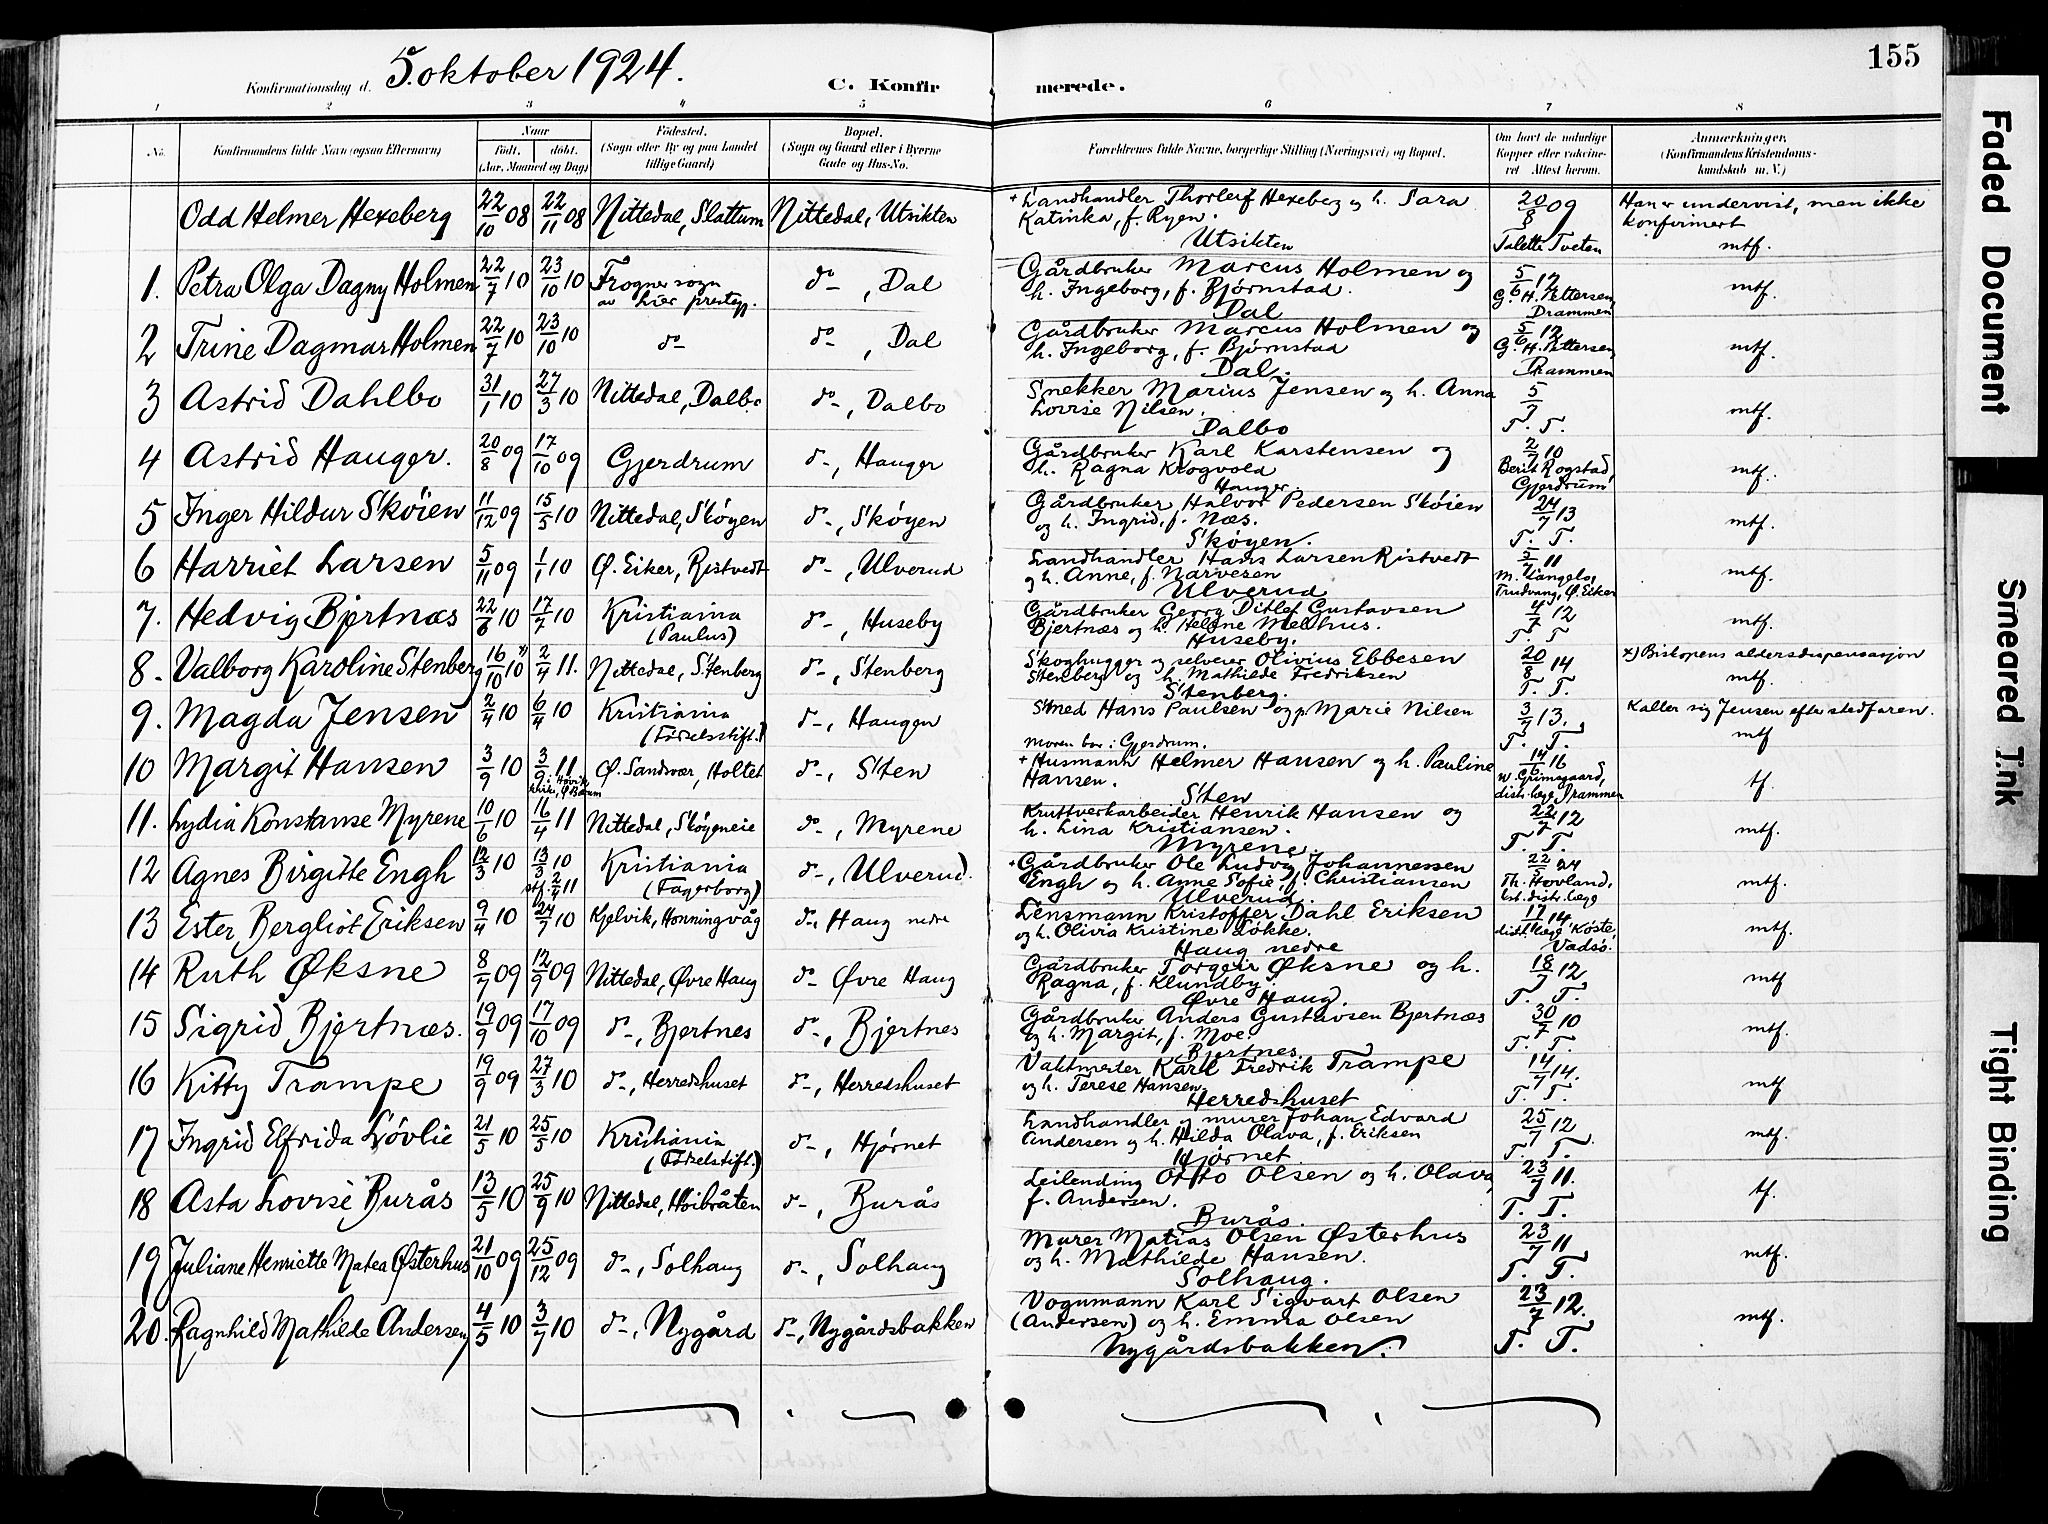 155
Konfirmationsdag d. 5. oktober 1924.
C. Konfirmerede.
1 2 3 4 5 6 7 8
No. Konfirmandens fulde Navn (ogsaa Efternavn) Naar Födt. döbt. (Aar, Maaned og Dag) Födested. (Sogn eller By og paa Landet tillige Gaard) Bopæl. (Sogn og Gaard eller i Byerne Gade og Hus-No. Forældrenes fulde Navne, borgerlige Stilling (Næringsvei) og Bopæl. Om havt de naturlige Kopper eller vakcineret. Attest herom. Anmærkninger, (Konfirmandens Kristendomskundskab m. V.)
Odd Helmer Hexeberg 22/10 08 22/11 08 Nittedal, Slattum Nittedal, Utsikten + Landhandler Thorleif Hexeberg og h. Sara Katinka, f. Ryen. Utsikten 20/8 09 Talette Tveten Han er undervist, men ikke konfirmert mtf.
1. Petra Olga Dagny Holmen 22/7 10 23/10 10 Frogner sogn av hier prestgj. do, Dal Gårdbruker Marcus Holmen og h. Ingeborg, f. Bjørnstad. Dal 5/6 12 G. H. Pettersen, Drammen mtf.
2 Trine Dagmar Holmen 22/7 10 23/10 10 do do, Dal Gårdbruker Marcus Holmen og h. Ingeborg, f. Bjørnstad Dal. 5/6 12 G. H. Pettersen, Drammen mtf.
3 Astrid Dahlbo 31/1 10 27/3 10 Nittedal, Dalbo do, Dalbo Snekker Marius Jensen og h. Anna Lovise Nilsen. Dalbo 5/7 T. T. mtf.
4 Astrid Hauger. 20/8 09 17/10 09 Gjerdrum do, Hauger Gårdbruker Karl Karstensen og h. Ragna Krogvold Hauger. 2/7 10 Berit Rogstad, Gjerdrum mtf.
5 Inger Hildur Skøien 11/12 09 15/5 10 Nittedal, Skøyen do, Skøyen Gårdbruker Halvor Pedersen Skøien og h. Ingrid, f. Næs. Skøyen. 24/7 13 T. T. mtf.
6 Harriet Larsen 5/11 09 1/1 10 Ø. Eiker, Ristvedt do, Ulverud Landhandler Hans Larsen Ristvedt og h. Anne, f. Narvesen Ulverud 5/7 11 M. Langelo, Trudvang, Ø. Eiker mtf.
7. Hedvig Bjertnæs 22/6 10 17/7 10 Kristiania (Paulus) do, Huseby Gårdbruker Georg Ditlef Gustavsen Bjertnæs og h. Helene Melhus. Huseby. 4/7 12 T. T mtf.
8. Valborg Karoline Stenberg 16/10 10 x) 2/4 11. Nittedal, Stenberg do, Stenberg Skoghugger og selveier Olivius Ebbesen Stenberg og h. Mathilde Fredriksen Stenberg. 20/8 14 T. T. x) Biskopens aldersdispensasjon mtf.
9. Magda Jensen 2/4 10 6/4 10 Kristiania (Fødselsstift.) do, Haugen Smed Hans Paulsen og p. Marie Nilsen Moren bor i Gjerdrum. 3/7 13. T. T. Kaller sig Jensen efter stedfaren. mtf
10 Margit Hansen 3/9 10 3/9 11 i Høvik kirke, Ø. Bærum Ø. Sandsvær, Holtet do, Sten + Husmann Helmer Hansen og h. Pauline Hansen. Sten 14/6 16 W. Grimsgaard, distr. læge Drammen tf.
11. Lydia Konstanse Myrene 10/6 10 16/4 11 Nittedal, Skøyeneie do, Myrene Kruttverkarbeider Henrik Hansen og h. Lina Kristiansen. Myrene. 22/7 12 T. T. mtf.
12 Agnes Birgitte Engh 12/3 10 13/3 10 stf. 2/4 11 Kristiania (Fagerborg) do, Ulverud. + Gårdbruker Ole Ludvig Johannessen Engh og h. Anne Sofie, f. Christiansen Ulverud. 22/5 24 Th. Hovland, kst. distr. læge mtf.
13 Ester Bergliot Eriksen 9/4 10 24/7 10 Kjelvik, Honningvåg do, Haug nedre Lensmann Kristoffer Dahl Eriksen og h. Olivia Kristine Løkke. Haug nedre 17/7 14 distr. læge Køste, Vadsø. mtf.
14 Ruth Øksne 8/7 09 12/9 09 Nittedal, Øvre Haug do Øvre Haug Gårdbruker Torgeir Øksne og h. Ragna, f. Klundby. Øvre Haug. 18/7 12 T. T. mtf
15 Sigrid Bjertnæs. 19/9 09 17/10 09 do, Bjertnes do, Bjertnes Gårdbruker Anders Gustavsen Bjertnæs og h. Margit, f. Moe. Bjertnes. 30/7 10 T. T. mtf.
16 Kitty Trampe 19/9 09 27/3 10 do, Herredshuset do, Herredshuset Vaktmester Karl Fredrik Trampe og h. Terese Hansen. Herredshuset 14/7 14. T. T. mtf
17 Ingrid Elfrida Løvlie 21/5 10 25/5 10 Kristiania (Fødselsstift.) do, Hjørnet Landhandler og murer Johan Edvard Andersen og h. Hilda Olava, f. Eriksen Hjørnet 25/7 12 T. T. mtf.
18 Asta Lovise Burås 13/5 10 25/9 10 Nittedal, Høibråten do, Burås Leilending Otto Olsen og h. Olava, f. Andersen. Burås. 23/7 11. T. T. tf.
19 Juliane Henriette Matea Østerhus 21/10 09 25/12 09 do, Solhaug do, Solhaug Murer Matias Olsen Østerhus og h. Mathilde Hansen. Solhaug. 23/7 11 T. T. mtf.
20. Ragnhild Mathilde Andersen 4/5 10 3/7 10 do, Nygård do, Nygårdsbakken Vognmann Karl Sigvart Olsen (Andersen) og h. Emma Olsen Nygårdsbakken. 23/7 12. T. T. mtf.
Faded Document
Smeared Ink
Tight Binding